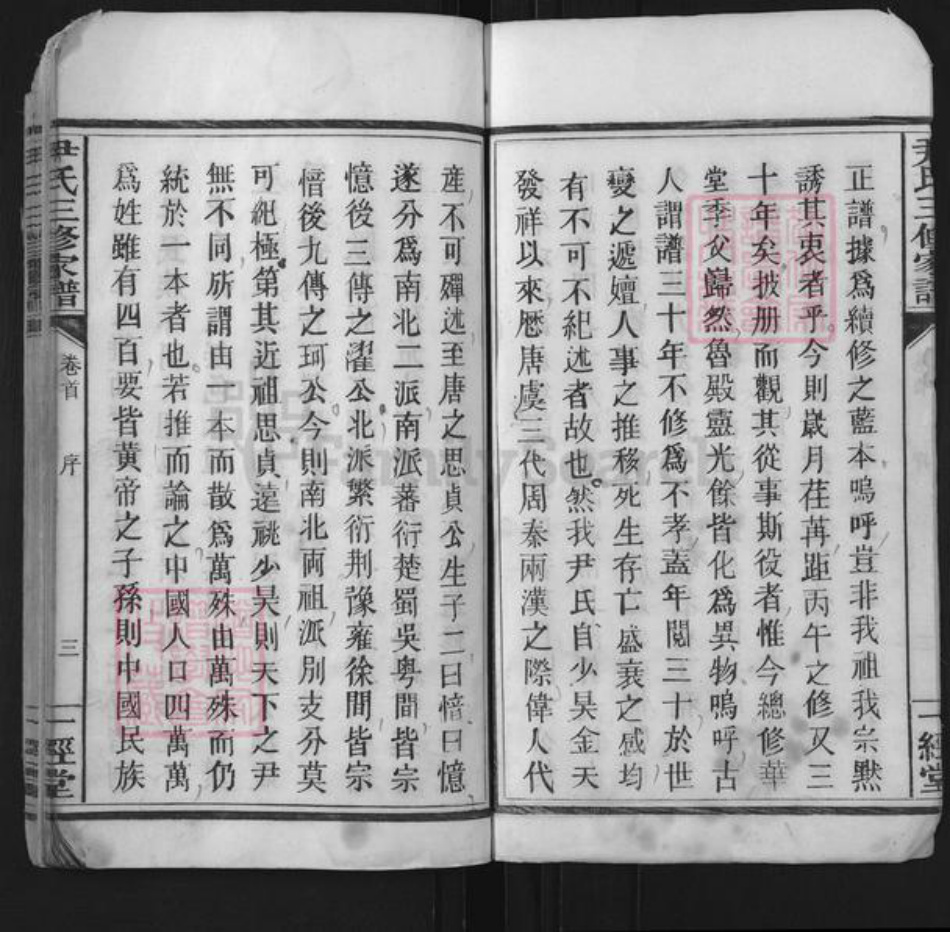 正譜據爲續修之藍本嗚呼豈非我祖我宗默
誘其衷者乎今則歲月荏苒距丙午之修又三
十年矣披册而觀其從事斯役者惟今總修華
堂季父歸然魯殿靈光餘皆化爲異物嗚呼古
人謂譜三十年不修爲不孝蓋年閱三十於世
變之遞嬗人事之推移死生存亡盛衰之感均
有不可不紀述者故也然我尹氏自少昊金天
發祥以來歷唐虞三代周秦兩漢之際偉人代
產不可殫述至唐之思貞公生子二曰愔曰憶
遂分爲南北二派南派蕃衍楚蜀吳粵間皆宗
憶後三傳之濯公北派繁衍荆豫雍徐間皆宗
愔後九傳之珂公今則南北兩祖派別支分莫
可紀極第其近祖思貞遠祧少昊則天下之尹
無不同所謂由一本而散爲萬殊由萬殊而仍
統於一本者也若推而論之中國人口四萬萬
爲姓雖有四百要皆黃帝之子孫則中國民族
尹氏三修家譜
卷首 序 三
一經堂
尹氏三修家譜
一經堂
FamilySearch